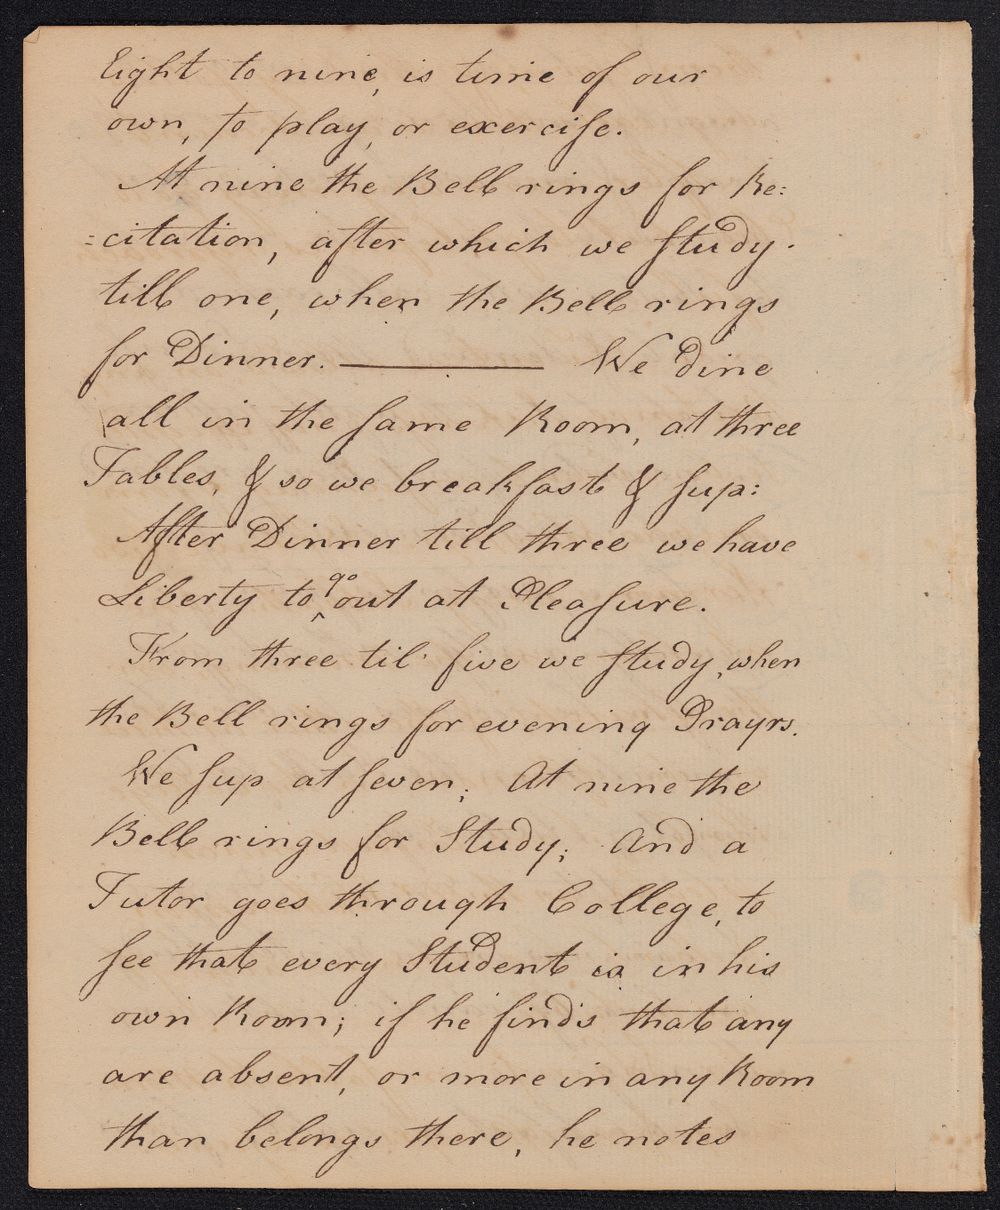 Eight to nine, is time of our
own, to play, or exercise.
At nine the Bell rings for Re:
=citation, after which we study.
till one, when the Bell rings
for Dinner. ——— We dine
all in the same Room, at three
Tables, & so we breakfast & sup:
After Dinner till three we have
Liberty to ^go out at Pleasure.
From three til' five we study, when
the Bell rings for evening Prayrs.
We sup at seven; At nine the
Bell rings for Study; And a
Tutor goes through College, to
see that every Student is in his
own Room; if he finds that any
are absent, or more in any Room
than belongs there, he notes